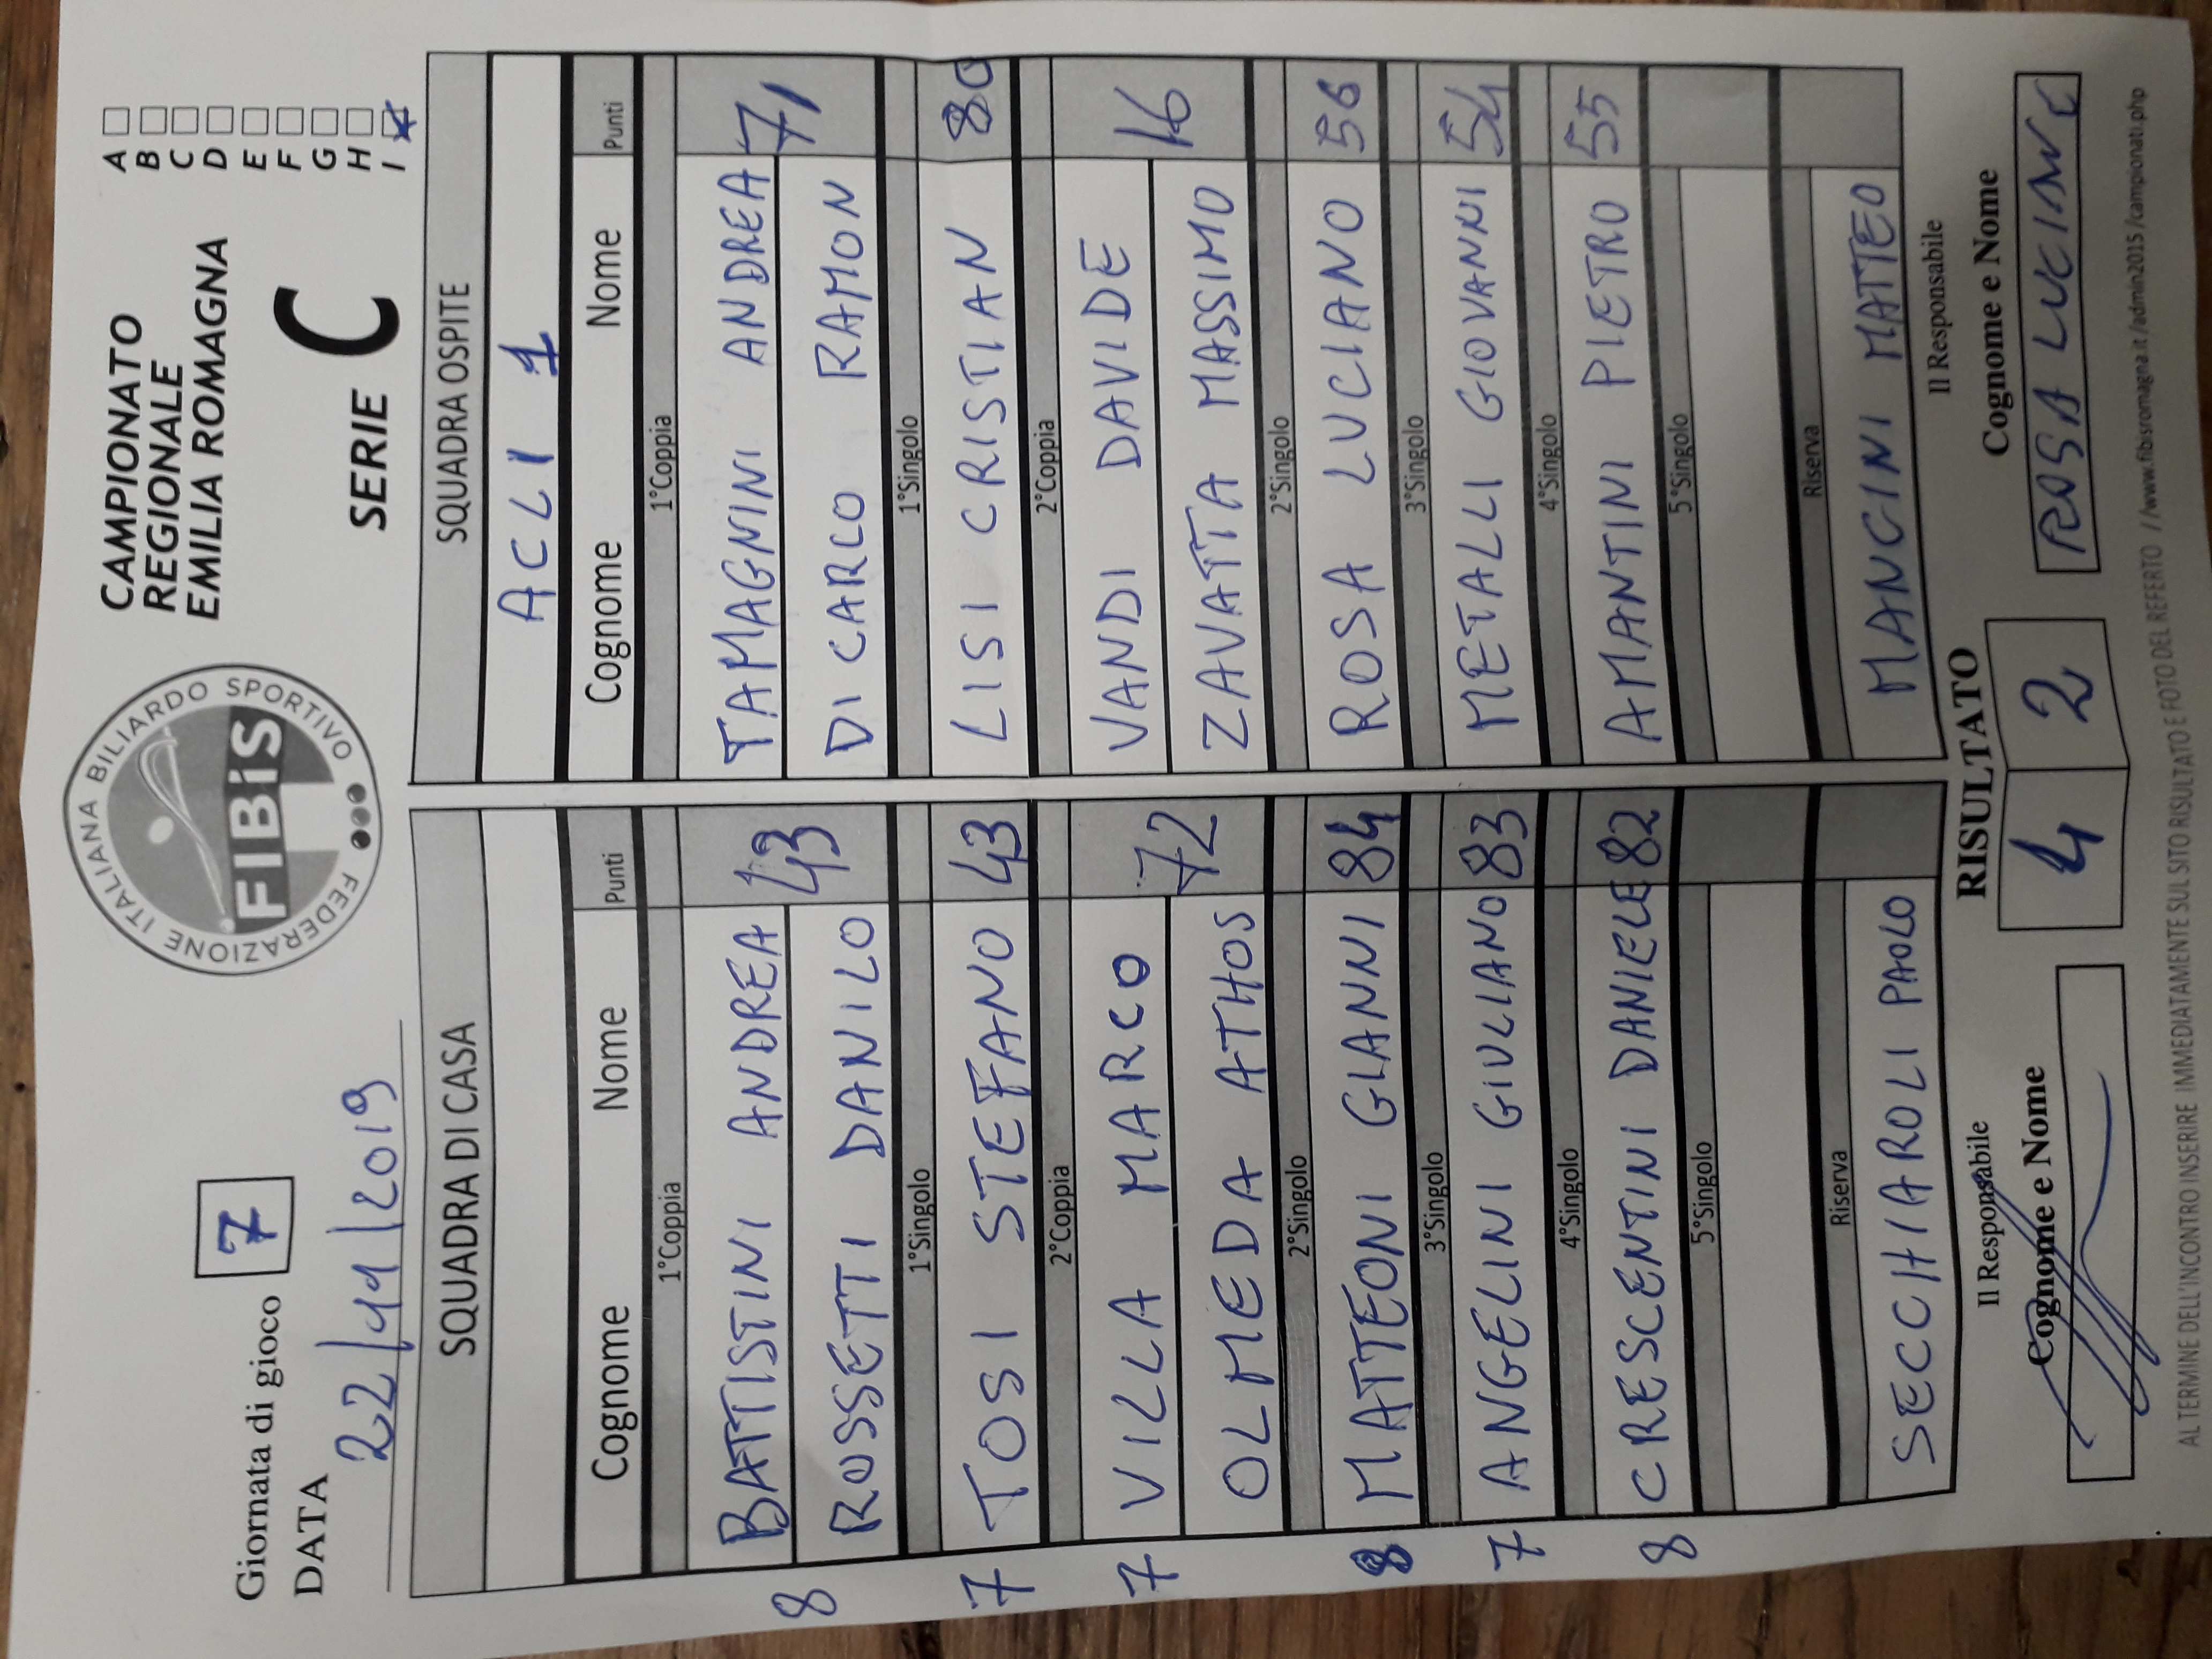 Giornata di gioco 7
DATA 22/11/2019
FEDERAZIONE ITALIANA BILIARDO SPORTIVO
FIBiS
CAMPIONATO
REGIONALE
EMILIA ROMAGNA
SERIE C
A
B
C
D
E
F
G
H
I
SQUADRA DI CASA SQUADRA OSPITE
ACLI 1
Cognome Nome Punti Cognome Nome Punti
1°Coppia 1°Coppia
BATTISTINI ANDREA 43 TAMAGNINI ANDREA 71
8 ROSSETTI DANILO DI CARLO RAMON
1°Singolo 1°Singolo
7 TOSI STEFANO 43 LISI CRISTIAN 80
2°Coppia 2°Coppia
7 VILLA MARCO 72 VANDI DAVIDE 16
OLMEDA ATHOS ZAVATTA MASSIMO
2°Singolo 2°Singolo
8 MATTEONI GIANNI 84 ROSA LUCIANO 56
3°Singolo 3°Singolo
7 ANGELINI GIULIANO 83 METALLI GIOVANNI 54
4°Singolo 4°Singolo
8 CRESCENTINI DANIELE 82 AMANTINI PIETRO 55
5°Singolo 5°Singolo
Riserva Riserva
SECCHIAROLI PAOLO MANCINI MATTEO
Il Responsabile RISULTATO Il Responsabile
Cognome e Nome 4 2 Cognome e Nome
ROSA
AL TERMINE DELL'INCONTRO INSERIRE IMMEDIATAMENTE SUL SITO RISULTATO E FOTO DEL REFERTO //www.fibisromagna.it/admin2015/campionati.php